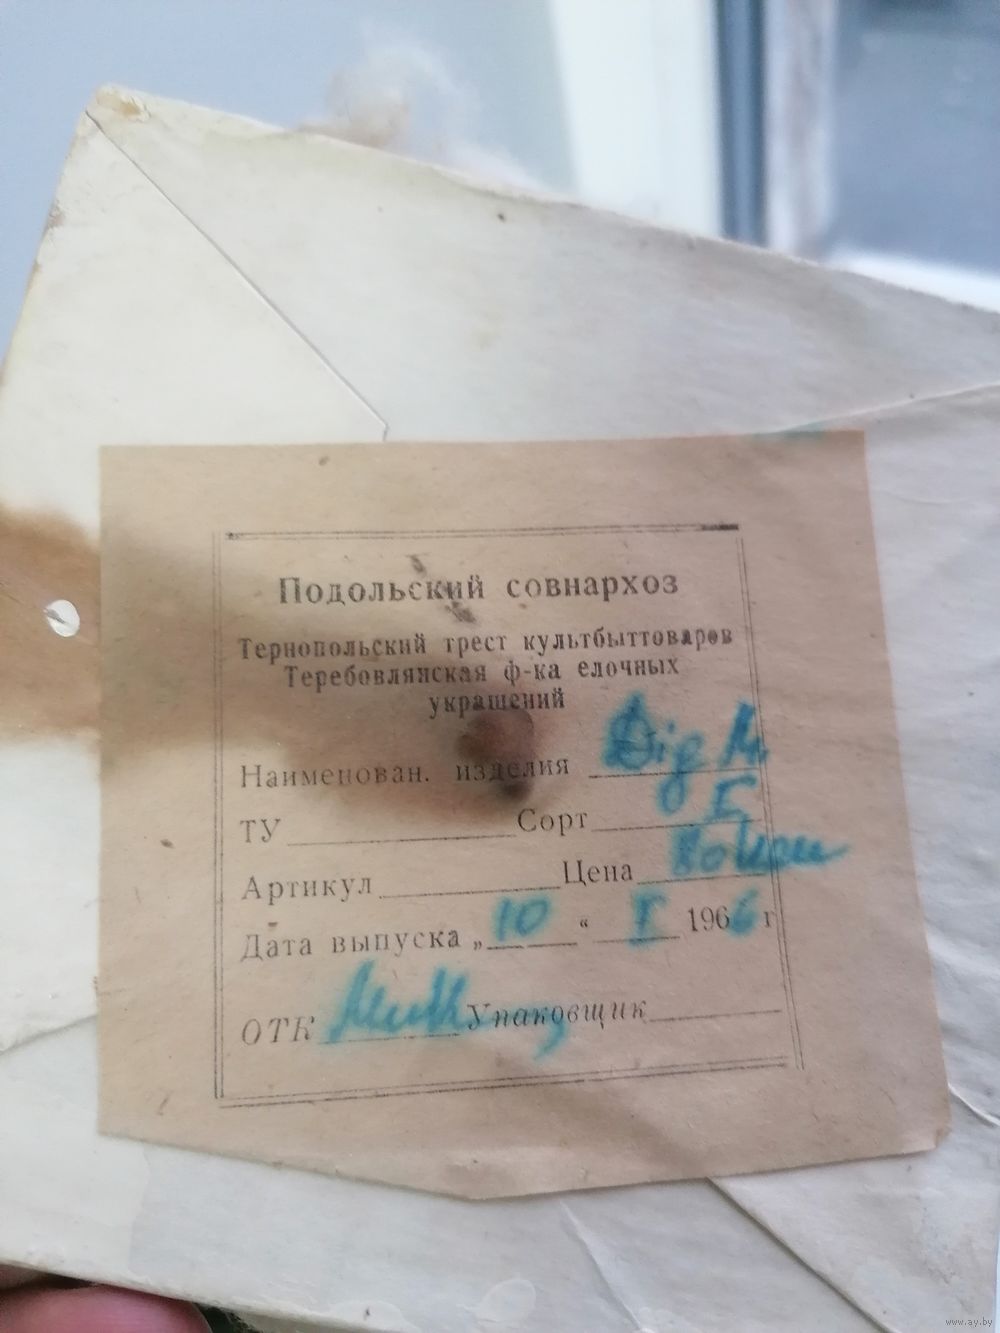 Подольский совнархоз
Тернопольский трест культбыттоваров
Теребовлянская ф-ка елочных
украшений
Наименован. изделия Дід М.
ТУ Сорт I
Артикул Цена коп
Дата выпуска „ 10 “ I 1966 г
ОТК Упаковщик
www.ay.by